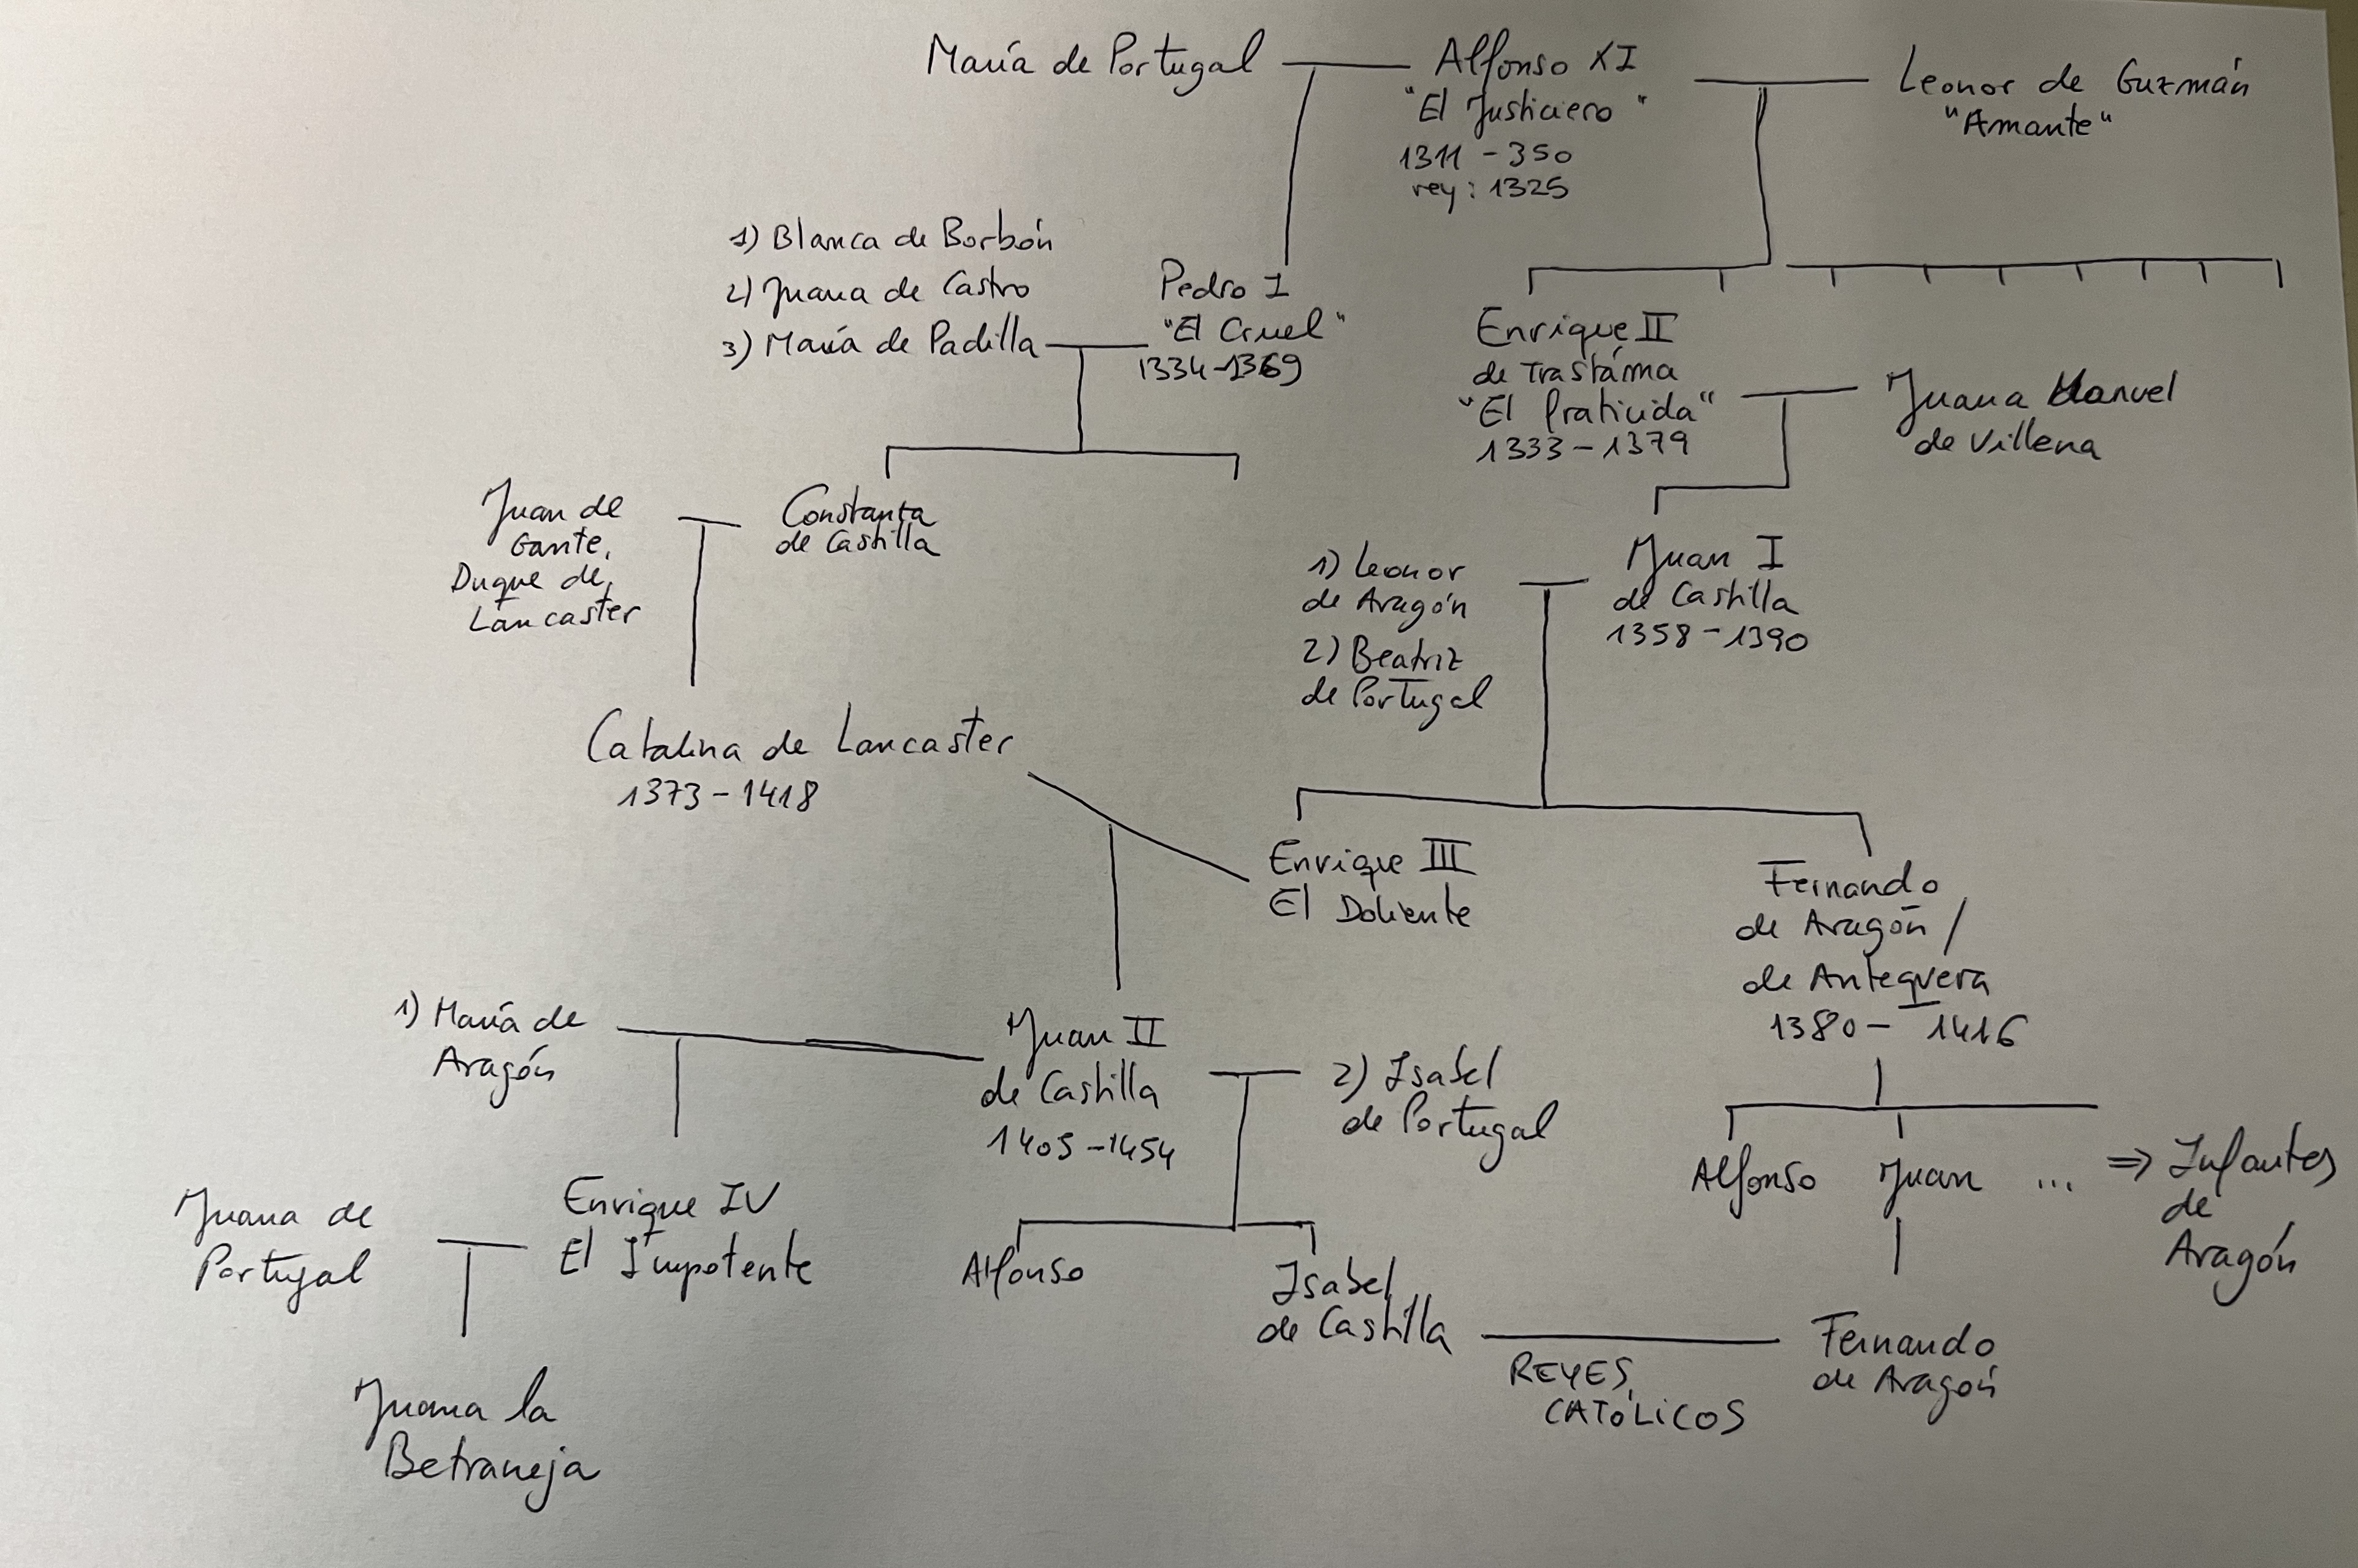 María de Portugal
Alfonso XI
"El Justiciero"
1311 - 350
rey: 1325
Leonor de Guzmán
"Amante"
1) Blanca de Borbón
2) Juana de Castro
3) María de Padilla
Pedro I
"El Cruel"
1334-1369
Enrique II
de Trastáma
"El fraticida"
1333-1379
Juana Manuel
de Villena
Juan de
Gante,
Duque de
Lancaster
Constanza
de Castilla
1) Leonor
de Aragón
2) Beatriz
de Portugal
Juan I
de Castilla
1358-1390
Catalina de Lancaster
1373-1418
Enrique III
El Doliente
Fernando
de Aragón /
de Antequera
1380-1416
1) María de
Aragón
Juan II
de Castilla
1405-1454
2) Isabel
de Portugal
Alfonso Juan ... ⇒ Infantes
de
Aragón
Juana de
Portugal
Enrique IV
El Impotente
Alfonso
Isabel
de Castilla
REYES
CATÓLICOS
Fernando
de Aragón
Juana la
Betraneja